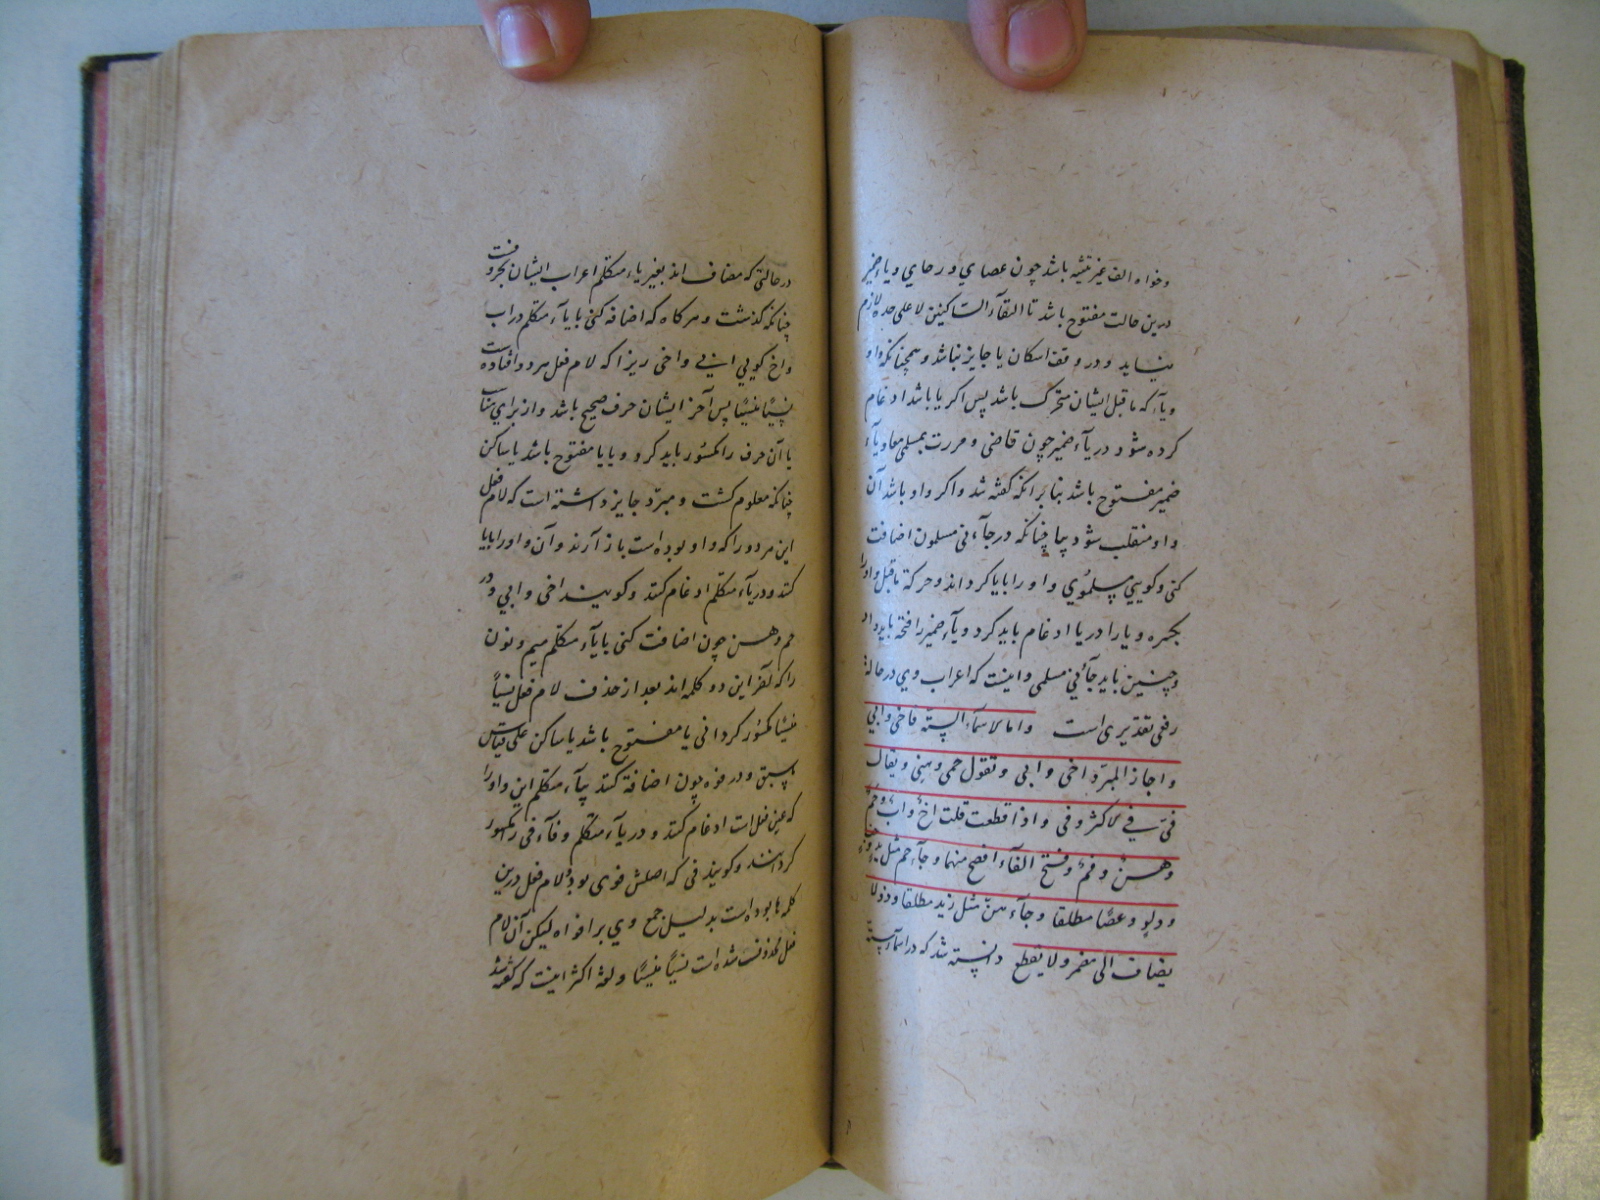 وخواه الف غیر تثنیه باشد چون عصاي و رحاي و یاء ضمیر
درین حالت مفتوح باشد تا التقآء الساکنین لا علی حده لازم
نیاید و در وقف اسکان یا جایز نباشد و همچنانکه واو
ویآء که ماقبل ایشان متحرک باشد پس اکر یا باشد ادغام
کرده شود در یآء ضمیر چون قاضی و مررت بمسلمی معا ویآء
ضمیر مفتوح باشد بنا برانکه کفته شد واکر واو باشد آن
واو منقلب شود بیا چنانکه در جآءنی مسلمون اضافت
کنی وکویي مسلموي واو را با یا کرداند وحرکة ماقبل واو را
بکسره و یا را در یا ادغام باید کرد ویآء ضمیر را فتحه باید داد
وچنین باید جآئني مسلمی واینست که اعراب وي در حالة
رفعی تقدیری است واما لاسمآء الستة فاخی وابي
واجاز المبرّد اخی وابی وتقول حمی وهنی ویقال
فیّ فے لاکثر وفمی واذا قطعت قلت اخٌ وابٌ وحمٌ
وهنٌ وفمٌ وفتح الفآء افصح منهما وجآء حم مثل یدٍ وخبءٍ
ودلوٍ وعصًا مطلقا وجآء هن مثل ید مطلقا وذو لا
یضاف الی مضمر ولا یقطع دانسته شد که در اسمآء سته
در حالتی که مضاف اند بغیر یاء متکلم اعراب ایشان بحروفست
چنانکه کذشت و هرکاه که اضافه کنی با یآء متکلم در اب
واخ کویي ابی واخی زیرا که لام فعل هر دو افتاده است
نسیًا منسیًا پس آخر ایشان حرف صحیح باشد واز براي مناسبت
یا آن حرف را مکسور باید کرد و یا یا مفتوح باشد یا ساکن
چنانکه معلوم کشت و مبرّد جایز داشته است که لام فعل
این هر دو را که واو بوده است باز آرند وآن واو را با یا
کنند ودر یآء متکلم ادغام کنند وکویند اخی وابي ودر
حم وهن چون اضافت کنی با یآء متکلم میم ونون
را که آخر این دو کلمه اند بعد از حذف لام فعل نسیًا
منسیًا مکسور کردانی یا مفتوح باشد یا ساکن علی قیاس
ماسبق ودر فوه چون اضافة کنند بیآء متکلم این واو را
که عین فعل است ادغام کنند و در یآء متکلم وفآء فی را مکسور
کردانند وکویند فی که اصلش فوی بود ولام فعل درین
کلمه ها بوده است بدلیل جمع وي بر افواه لیکن آن لام
فعل محذوفست شده است نسیًا منسیًا ولغة اکثر اینست که کفته شد